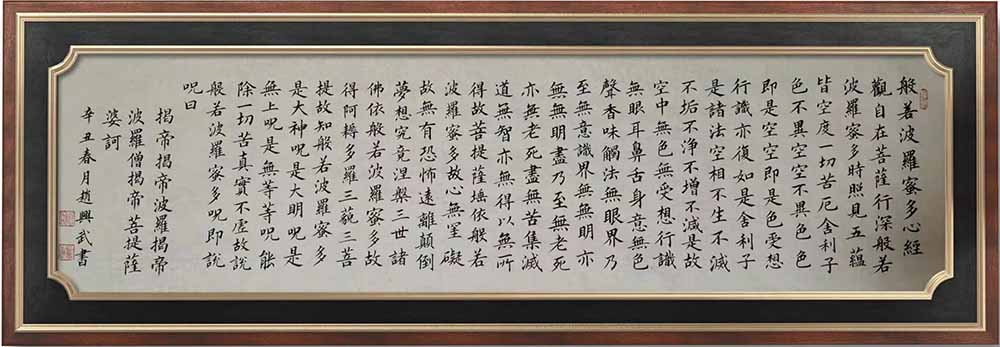 般若波羅蜜多心經
觀自在菩薩行深般若
波羅蜜多時照見五蘊
皆空度一切苦厄舍利子
色不異空空不異色色
即是空空即是色受想
行識亦復如是舍利子
是諸法空相不生不滅
不垢不淨不增不減是故
空中無色無受想行識
無眼耳鼻舌身意無色
聲香味觸法無眼界乃
至無意識界無無明亦
無無明盡乃至無老死
亦無老死盡無苦集滅
道無智亦無得以無所
得故菩提薩埵依般若
波羅蜜多故心無罣礙
故無有恐怖遠離顛倒
夢想究竟涅槃三世諸
佛依般若波羅蜜多故
得阿耨多羅三藐三菩
提故知般若波羅蜜多
是大神呪是大明呪是
無上呪是無等等呪能
除一切苦真實不虛故說
般若波羅蜜多呪即說
呪曰
揭帝揭帝波羅揭帝
波羅僧揭帝菩提薩
婆訶
辛丑春月趙興武書